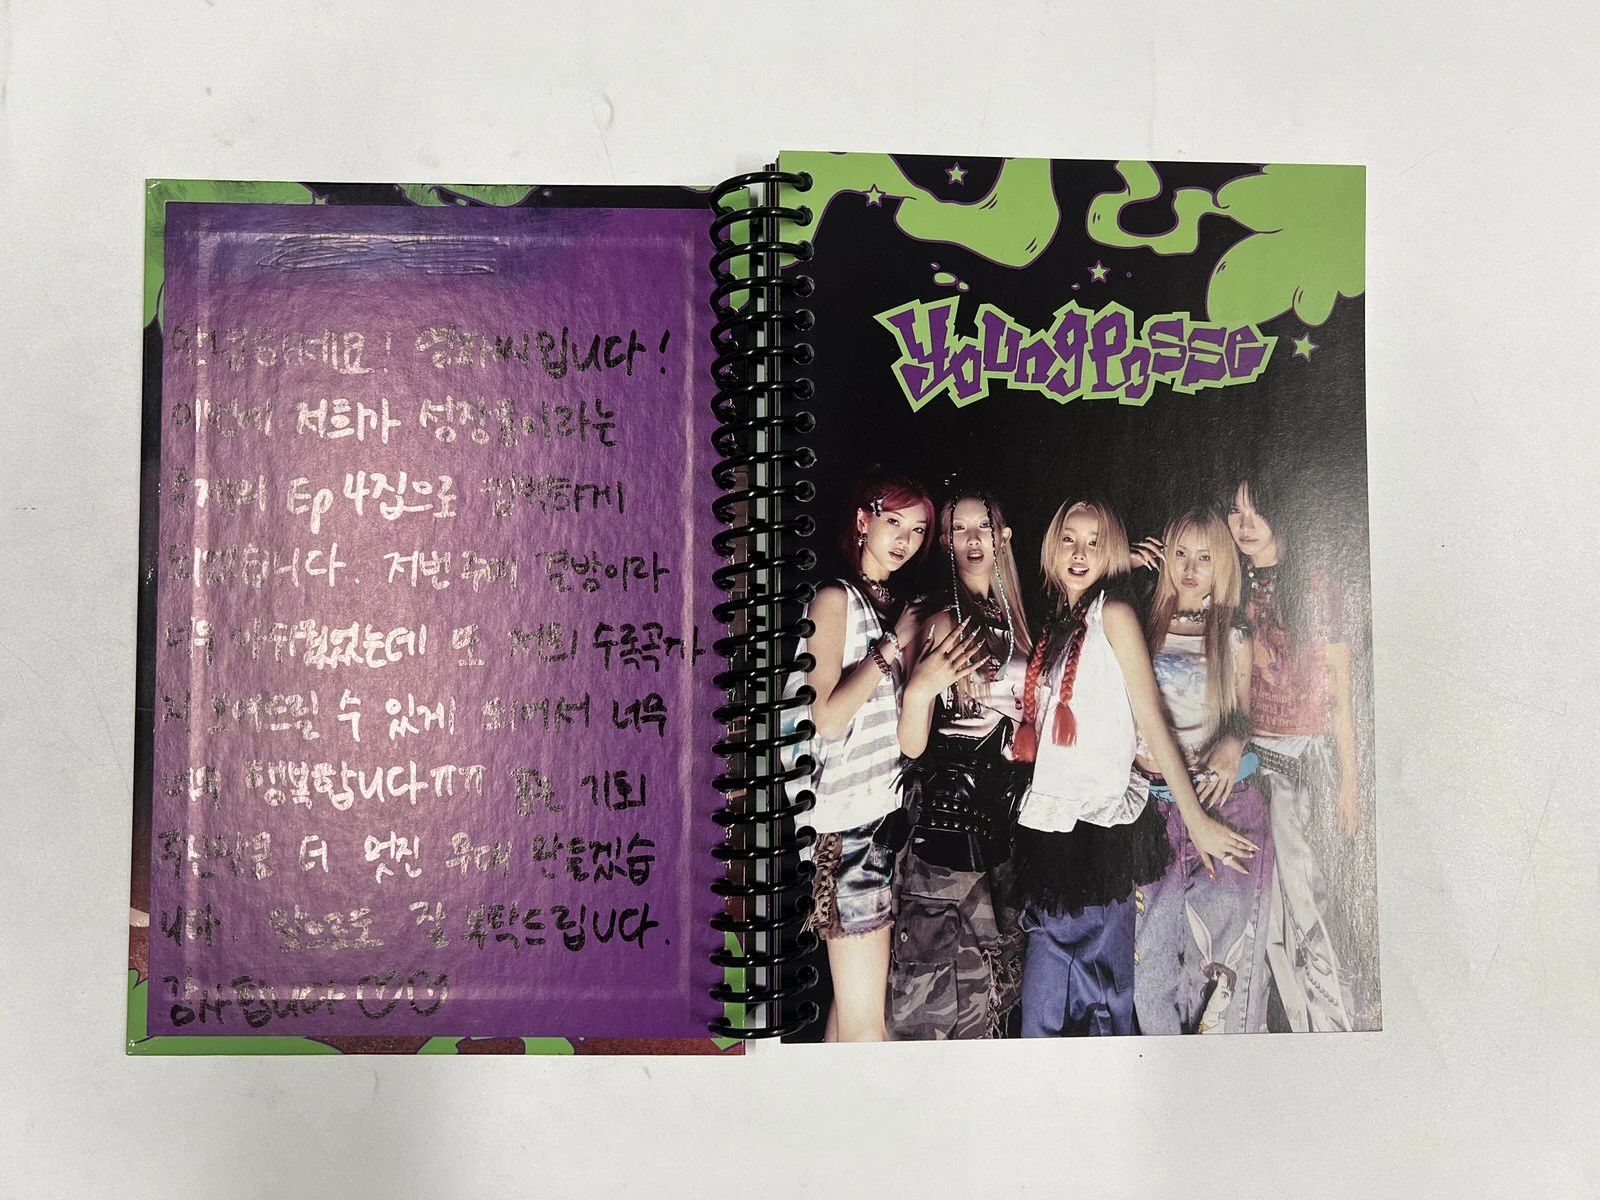 안녕하세요! 영파씨입니다!
이번에 저희가 성장통이라는
주제의 Ep 4집으로 컴백하게
되었습니다. 저번주에 결방이라
너무 아쉬웠었는데 또 저희 수록곡까
지 보여드릴 수 있게 되어서 너무
너무 행복합니다ㅠㅠ 좋은 기회
주신만큼 더 멋진 무대 만들겠습
니다! 앞으로도 잘 부탁드립니다.
감사합니다♡♡
YoungPosse